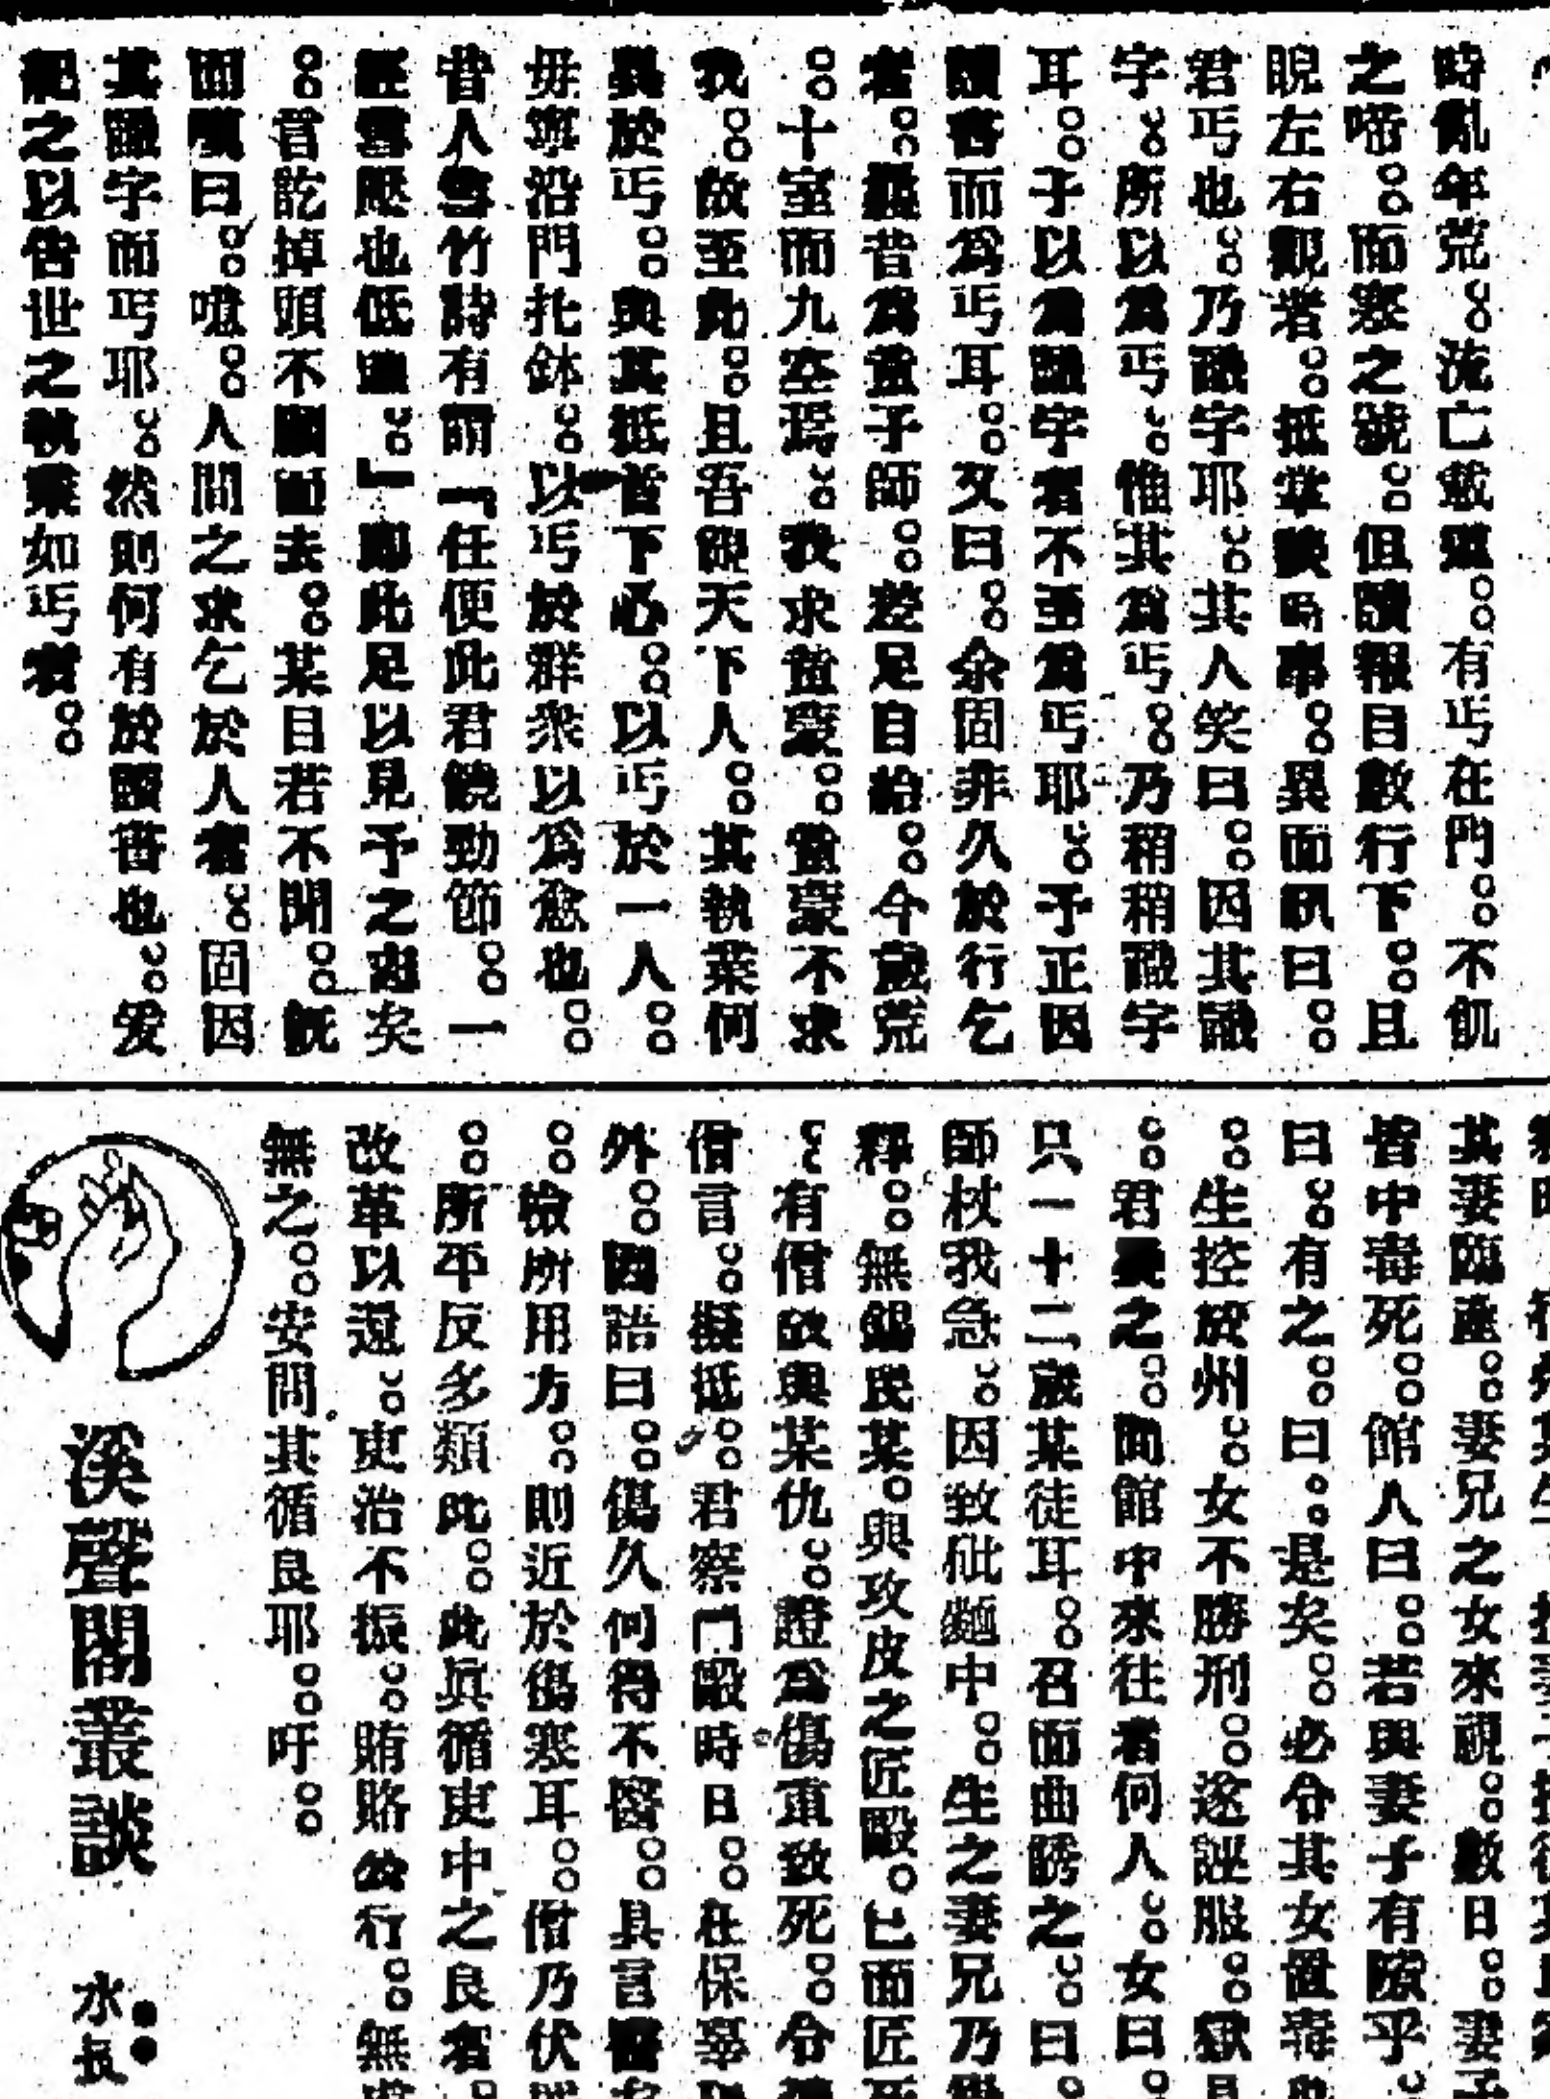 時亂年荒。。流亡載道。。有丐在門。。不飢
之啼。。而寒之號。。但讀報目數行下。。且
睨左右觀者。。抵掌談時事。。異而訊曰。。
君丐也。。乃識字耶。。其人笑曰。。因其識
字。。所以爲丐。。惟其爲丐。。乃稍稍識字
耳。。子以爲識字者不至爲丐耶。。予正因
讀書而爲丐耳。。又曰。。余固非久於行乞
者。。曩昔爲童子師。。差足自給。。今歲荒
。。十室而九空焉。。我求童蒙。。童蒙不求
我。。故至此。。且吾觀天下人。。其執業何
異於丐。。與其抵首下心。。以丐於一人。。
毋寧沿門托鉢。。以丐於群衆以爲愈也。。
昔人雪竹詩有謂「任便此君饒勁節。。一
經雪壓也低頭。。」即此足以見予之志矣
。。言訖掉頭不顧而去。。某目若不聞。。旣
而嘆曰。。噫。。人間之求乞於人者。。固因
其識字而丐耶。。然則何有於讀書也。。爰
紀之以告世之執業如丐者。。
其妻臨產。。妻兄之女來視。。數日。。妻子
皆中毒死。。館人曰。。若與妻子有隙乎
曰。。有之。。曰。。是矣。。必令其女置毒
。。生控於州。。女不勝刑。。遂誣服。。獄
。。君疑之。。問館中來往者何人。。女曰。
只一十二歲某徒耳。。召而曲誘之。。曰。
師杖我急。。因致砒麵中。。生之妻兄乃
釋。。無錫民某。與攻皮之匠毆。已而匠死
。。有僧故與某仇。。證爲傷重致死。。令
僧言。。擬抵。。君察鬥毆時日。。在保辜
外。。因詰曰。。傷久何得不醫。。具言醫
。。檢所用方。。則近於傷寒耳。。僧乃伏
。。所平反多類此。。此眞循吏中之良者。
改革以還。。吏治不振。。賄賂公行。。無
無之。。安問其循良耶。。吁。。
溪聲閣叢談
水長